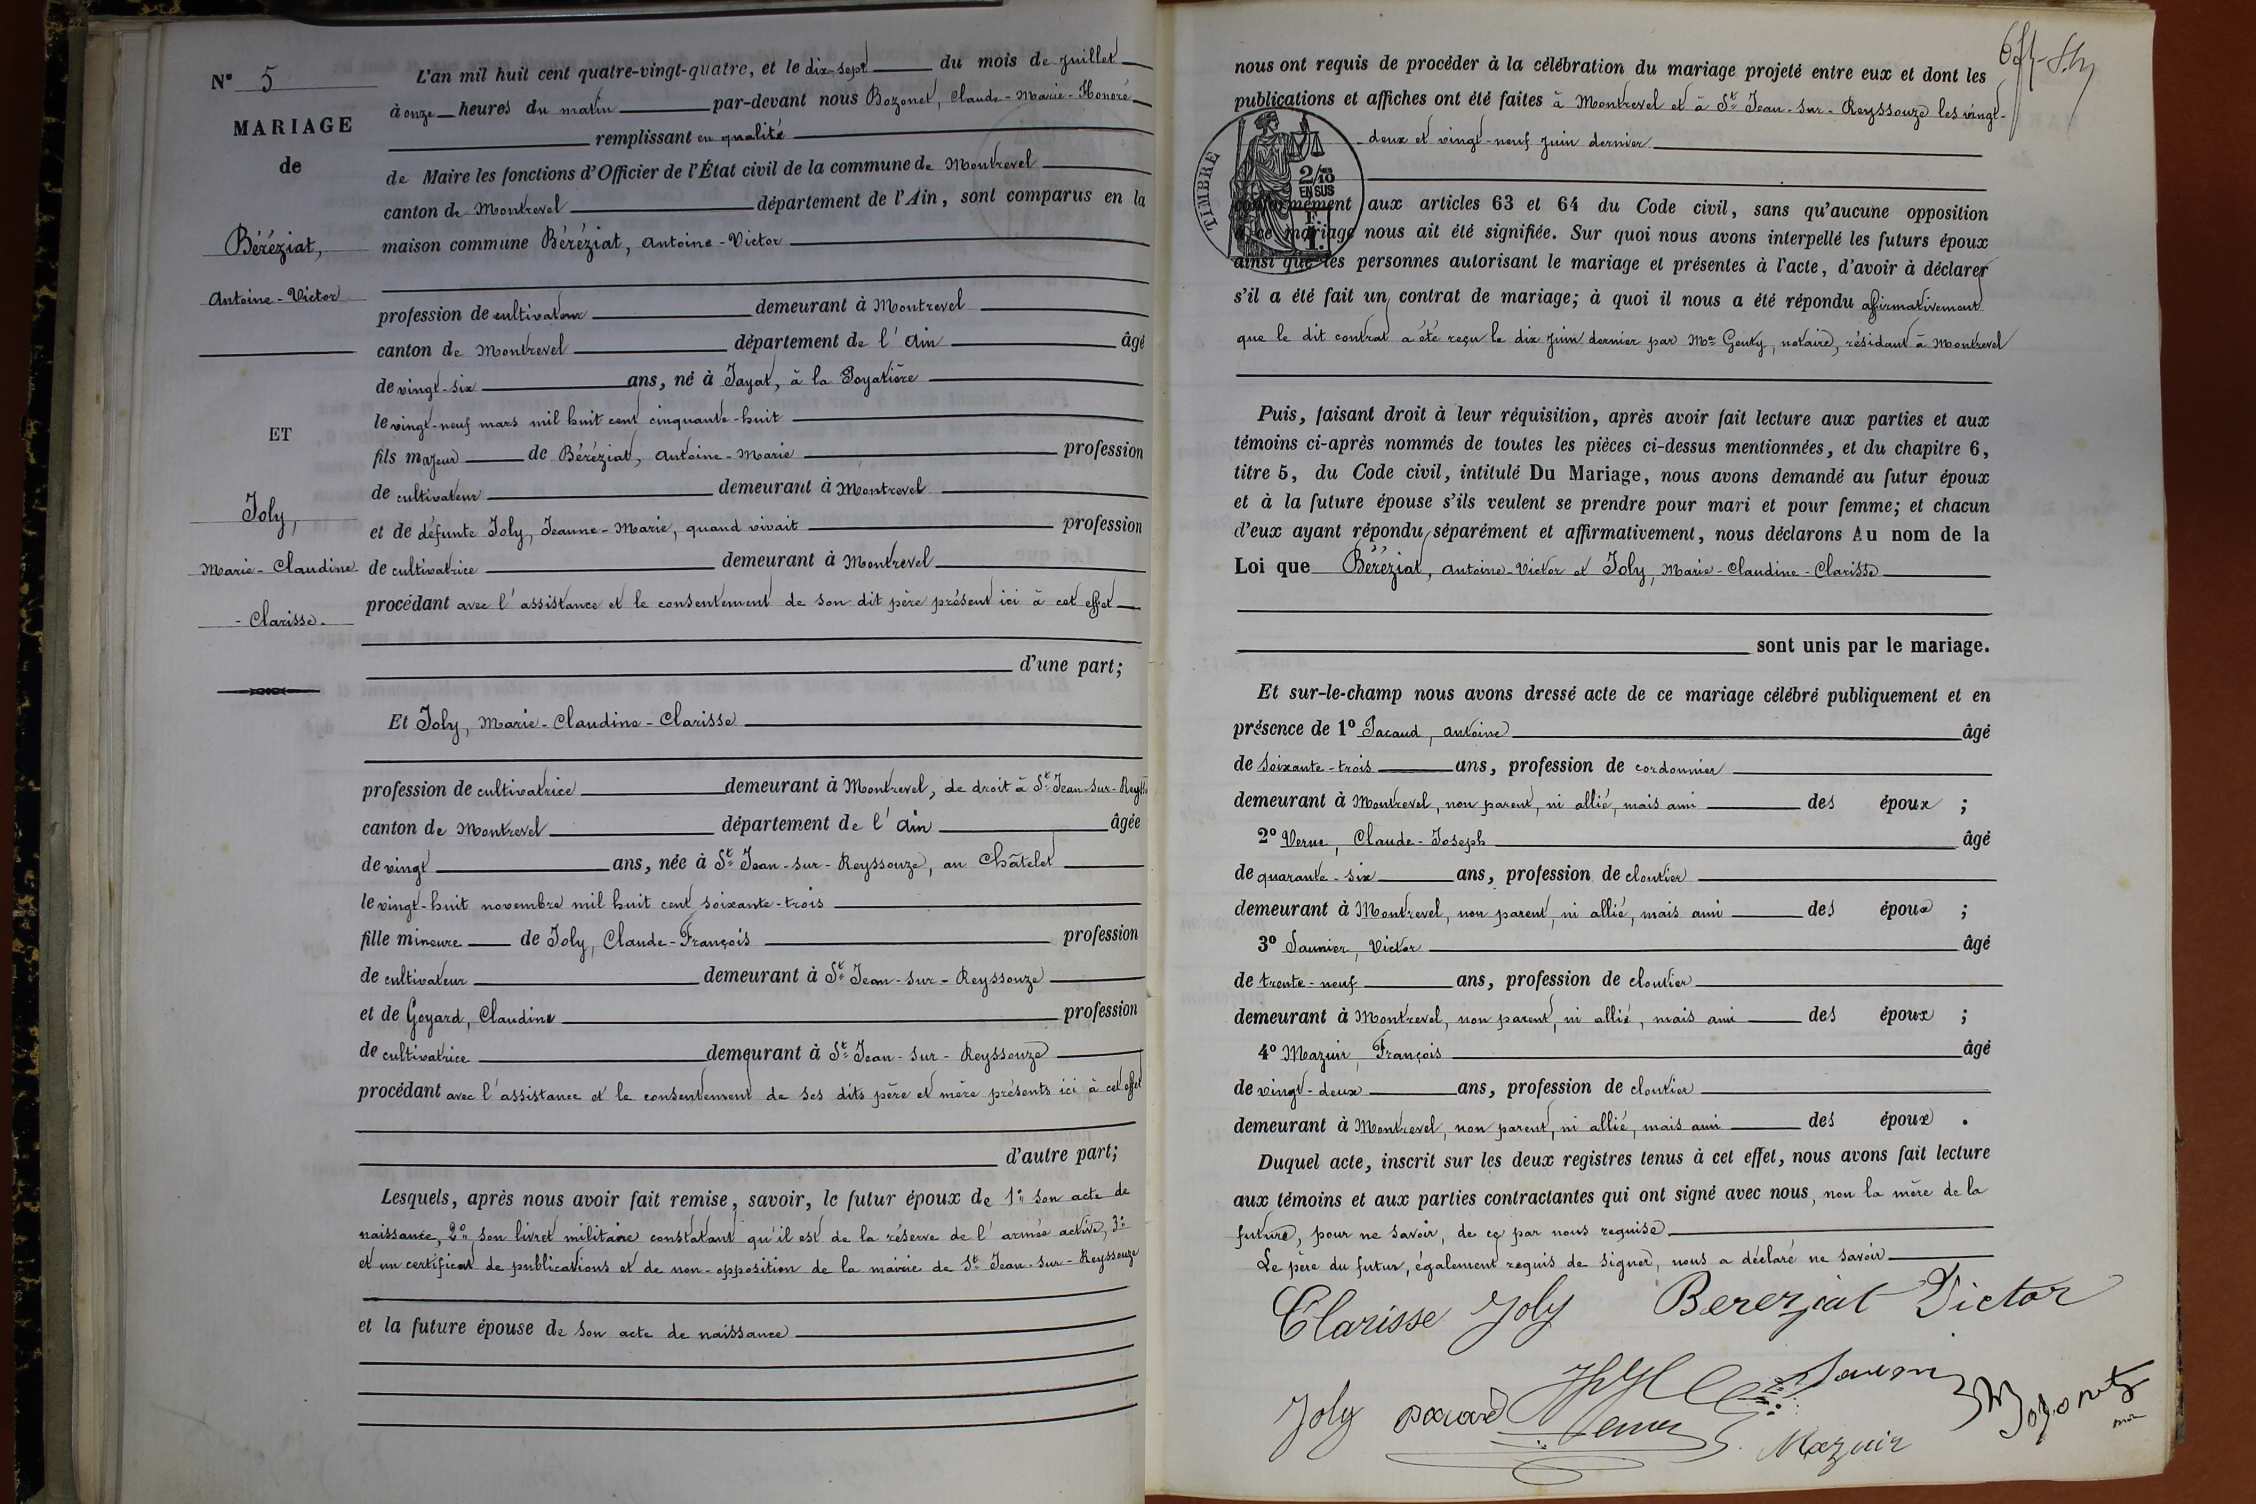 N° 5
MARIAGE
de
Béréziat,
Antoine-Victor
ET
Joly,
Marie-Claudine
-Clarisse.
L'an mil huit cent quatre-vingt-quatre, et le dix-sept du mois de juillet
à onze heures du matin par-devant nous Bozonet, Claude-Marie-Honoré
remplissant en qualité
de Maire les fonctions d'Officier de l'État civil de la commune de Montrevel
canton de Montrevel département de l'Ain, sont comparus en la
maison commune Béréziat, Antoine-Victor
profession de cultivateur demeurant à Montrevel
canton de Montrevel département de l'Ain âgé
de vingt-six ans, né à Jayat, à la Poyatière
le vingt-neuf mars mil huit cent cinquante-huit
fils majeur de Béréziat, Antoine-Marie profession
de cultivateur demeurant à Montrevel
et de défunte Joly, Jeanne-Marie, quand vivait profession
de cultivatrice demeurant à Montrevel
procédant avec l'assistance et le consentement de son dit père présent ici à cet effet
d'une part;
Et Joly, Marie-Claudine-Clarisse
profession de cultivatrice demeurant à Montrevel, de droit à St Jean-sur-Reyss
canton de Montrevel département de l'Ain âgée
de vingt ans, née à St Jean-sur-Reyssouze, au Châtelet
le vingt-huit novembre mil huit cent soixante-trois
fille mineure de Joly, Claude-François profession
de cultivateur demeurant à St Jean-sur-Reyssouze
et de Goyard, Claudine profession
de cultivatrice demeurant à St Jean-sur-Reyssouze
procédant avec l'assistance et le consentement de ses dits père et mère présents ici à cet effet
d'autre part;
Lesquels, après nous avoir fait remise, savoir, le futur époux de 1° son acte de
naissance, 2° son livret militaire constatant qu'il est de la réserve de l'armée active, 3°
et un certificat de publications et de non-opposition de la mairie de St Jean-sur-Reyssouze
et la future épouse de son acte de naissance
nous ont requis de procéder à la célébration du mariage projeté entre eux et dont les
publications et affiches ont été faites à Montrevel et à St Jean-sur-Reyssouze les vingt-
deux et vingt-neuf juin dernier
TIMBRE
2/10
EN SUS
conformément aux articles 63 et 64 du Code civil, sans qu'aucune opposition
à ce mariage nous ait été signifiée. Sur quoi nous avons interpellé les futurs époux
ainsi que les personnes autorisant le mariage et présentes à l'acte, d'avoir à déclarer
s'il a été fait un contrat de mariage; à quoi il nous a été répondu affirmativement
que le dit contrat a été reçu le dix juin dernier par Me Genty, notaire, résidant à Montrevel
Puis, faisant droit à leur réquisition, après avoir fait lecture aux parties et aux
témoins ci-après nommés de toutes les pièces ci-dessus mentionnées, et du chapitre 6,
titre 5, du Code civil, intitulé Du Mariage, nous avons demandé au futur époux
et à la future épouse s'ils veulent se prendre pour mari et pour femme; et chacun
d'eux ayant répondu séparément et affirmativement, nous déclarons Au nom de la
Loi que Béréziat, Antoine-Victor et Joly, Marie-Claudine-Clarisse
sont unis par le mariage.
Et sur-le-champ nous avons dressé acte de ce mariage célébré publiquement et en
présence de 1° Pacaud, Antoine âgé
de soixante-trois ans, profession de cordonnier
demeurant à Montrevel, non parent, ni allié, mais ami des époux ;
2° Verne, Claude-Joseph âgé
de quarante-six ans, profession de cloutier
demeurant à Montrevel, non parent, ni allié, mais ami des époux ;
3° Saunier, Victor âgé
de trente-neuf ans, profession de cloutier
demeurant à Montrevel, non parent, ni allié, mais ami des époux ;
4° Mazuir, François âgé
de vingt-deux ans, profession de cloutier
demeurant à Montrevel, non parent, ni allié, mais ami des époux .
Duquel acte, inscrit sur les deux registres tenus à cet effet, nous avons fait lecture
aux témoins et aux parties contractantes qui ont signé avec nous, non la mère de la
future, pour ne savoir, de ce par nous requise
Le père du futur, également requis de signer, nous a déclaré ne savoir
Clarisse Joly Bereziat Victor
Joly Pacaud Verne Mazuir